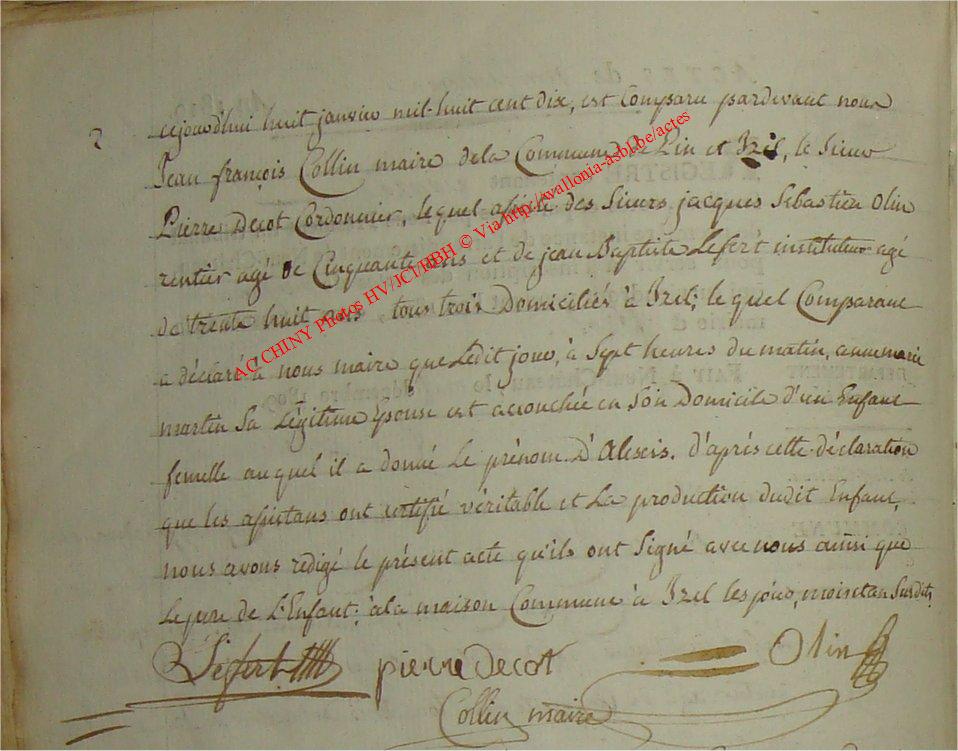 2
cejourdhui huit janvier mil-huit cent dix, est Comparu pardevant nous
Jean françois Collin maire dela Commune de Pin et Izel, le Sieur
Pierre Decot Cordonnier, lequel assisté des Sieurs jacques Sébastien Olin
rentier agé de Cinquante ans et de jean Baptiste Lefert instituteur agé
de trente huit ans tous trois Domiciliés à Izel; le quel Comparant
a déclaré à nous maire que Ledit jour, à Sept heures du matin, anne marie
martin Sa Légitime Epouse est accouchée en Son Domicile d'un Enfant
femelle auquel il a donné Le prénom D'Alexis. d'après cette déclaration
que les assistans ont certifié véritable et La production dudit Enfant,
nous avons rédigé le présent acte qu'ils ont Signé avec nous ainsi que
Le pere de L'Enfant; àla maison Commune à Izel les jour, mois et an Susdits
Lefert pierre Decot Olin
Collin maire
AC CHINY Photos HV/JCT/BBH © Via http://wallonia-asbl.be/actes